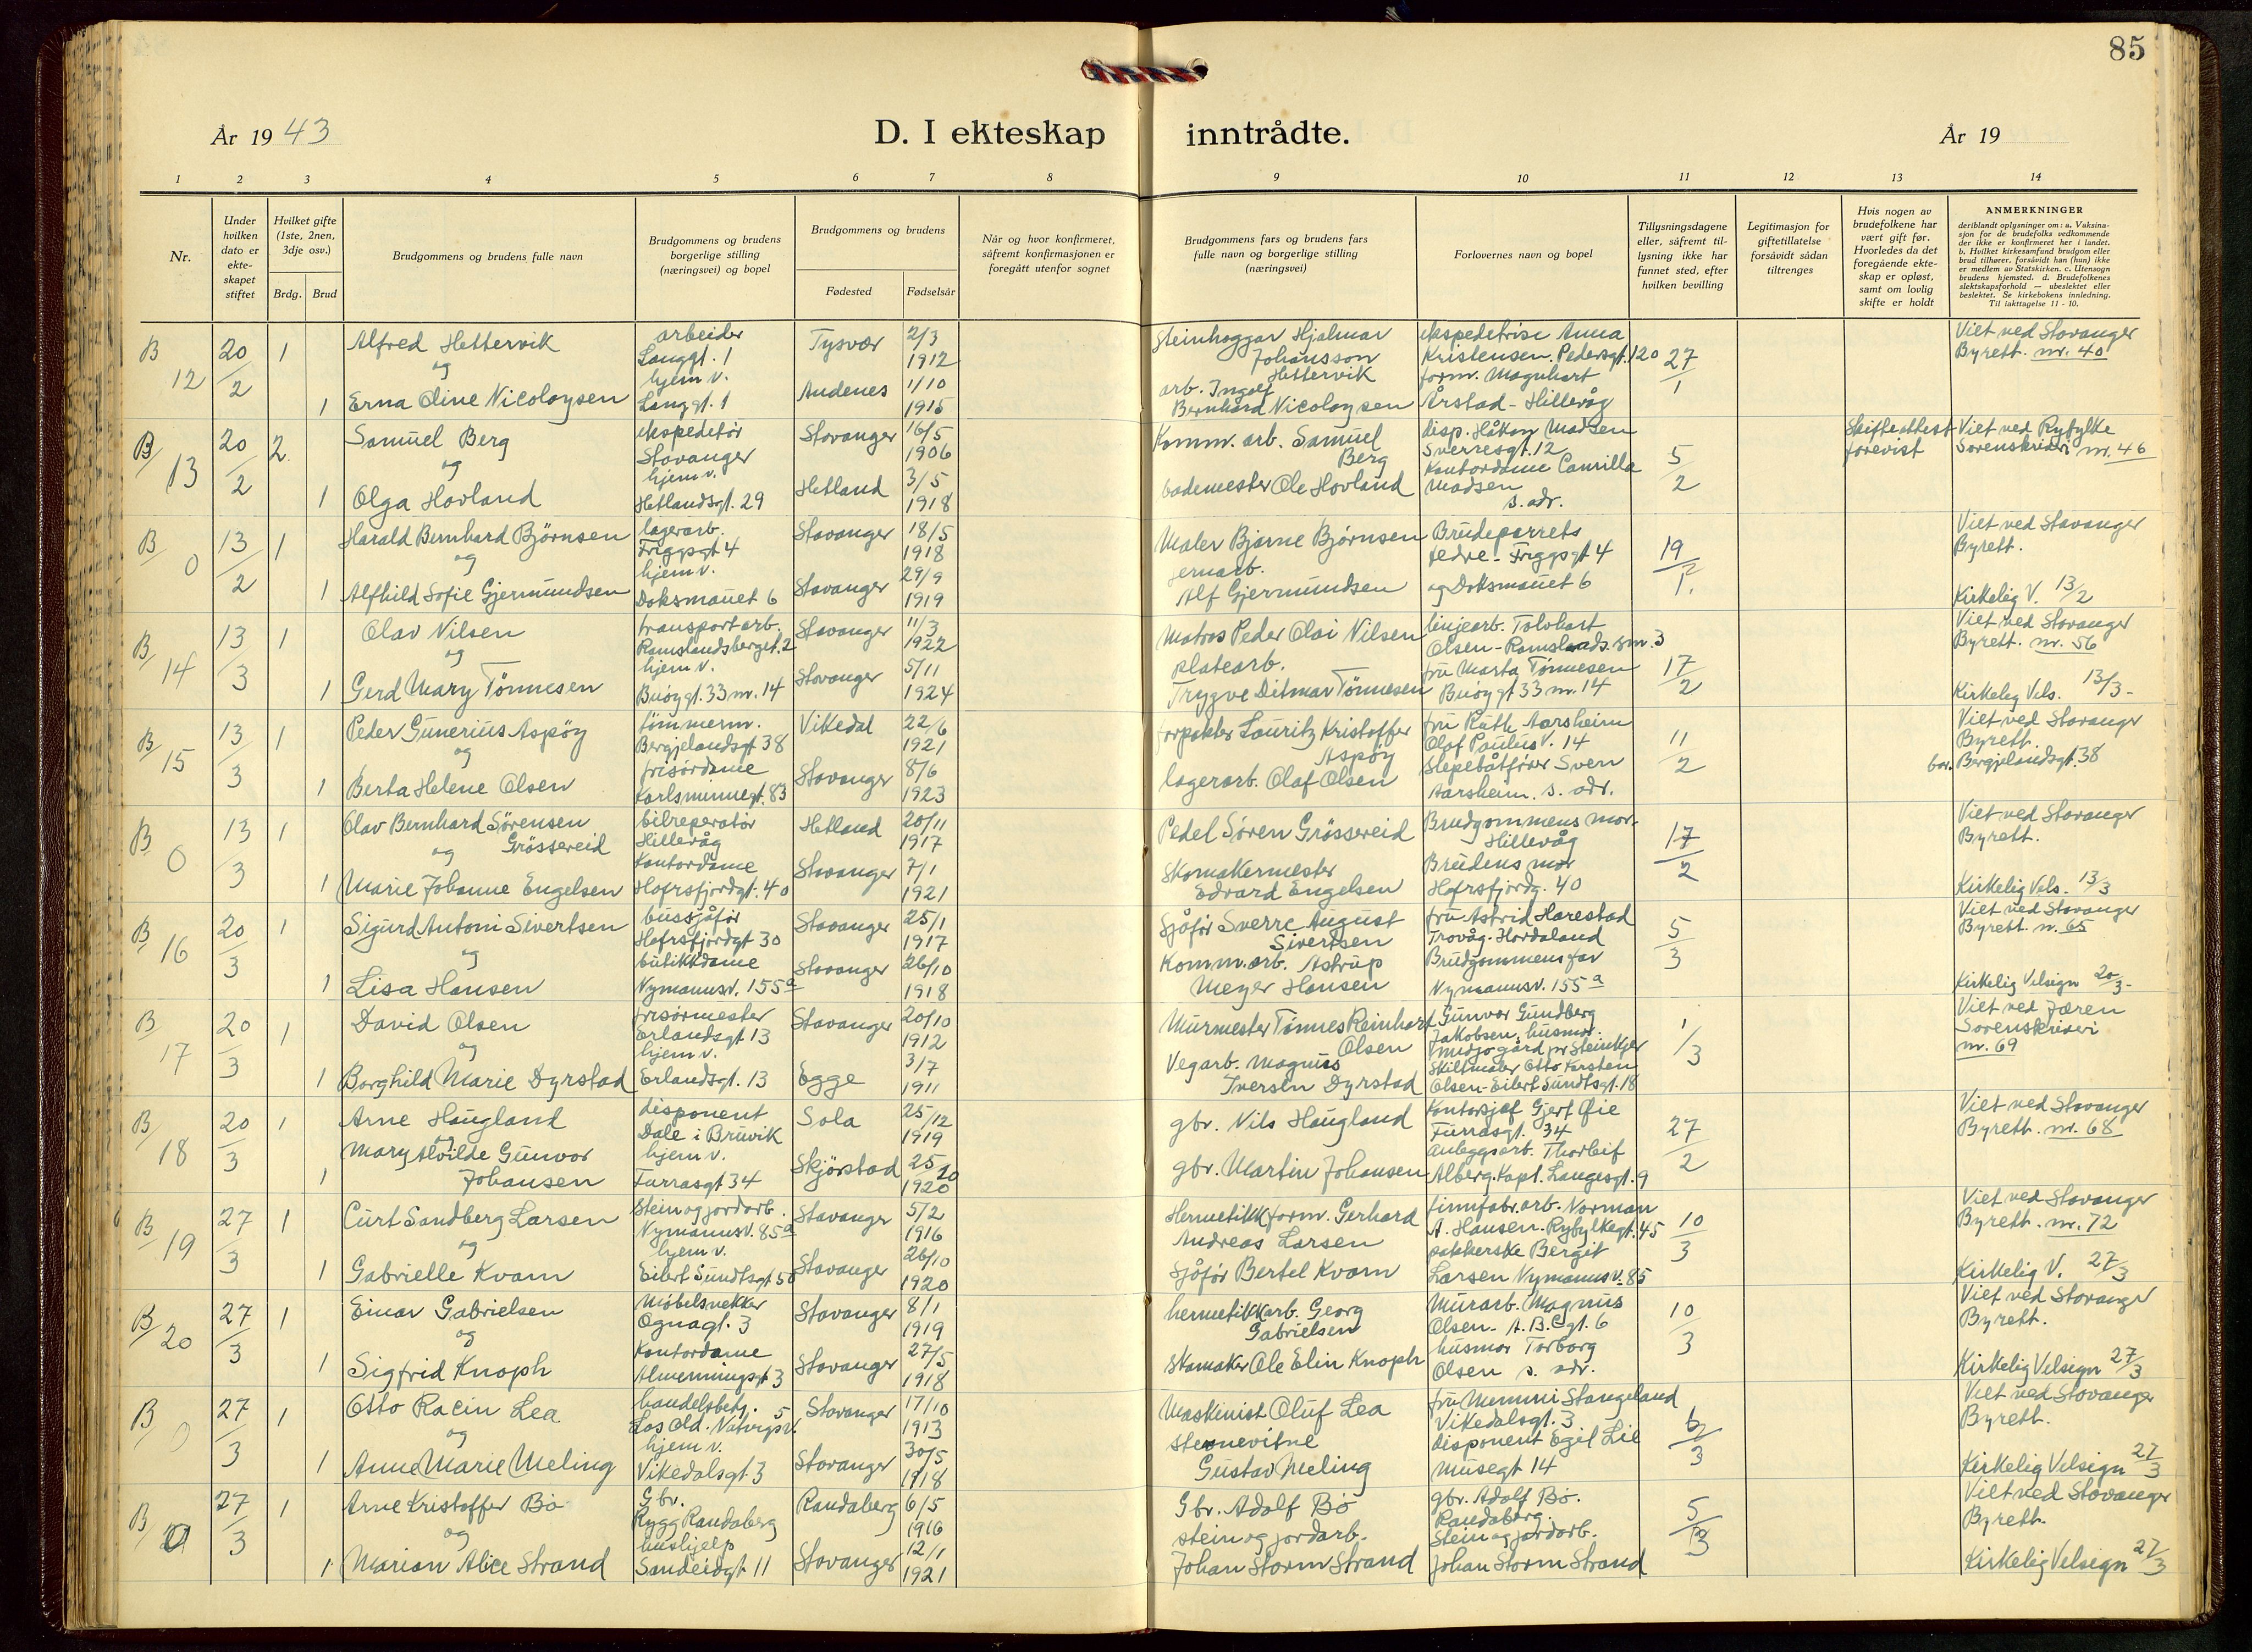 85
År 19 43
D. I ekteskap inntrådte.
År 19
1 2 3 4 5 6 7 8 9 10 11 12 13 14
Nr.
Under hvilken dato er ekte-skapet stiftet
Hvilket gifte (1ste, 2nen, 3dje osv.)
Brdg. Brud
Brudgommens og brudens fulle navn
Brudgommens og brudens borgerlige stilling (næringsvei) og bopel
Brudgommens og brudens
Fødested Fødselsår
Når og hvor konfirmeret, såfremt konfirmasjonen er foregått utenfor sognet
Brudgommens fars og brudens fars fulle navn og borgerlige stilling (næringsvei)
Forlovernes navn og bopel
Tillysningsdagene eller, såfremt til-lysning ikke har funnet sted, efter hvilken bevilling
Legitimasjon for giftetillatelse forsåvidt sådan tiltrenges
Hvis nogen av brudefolkene har vært gift før. Hvorledes da det foregående ekte-skap er opløst, samt om lovlig skifte er holdt
ANMERKNINGER
deriblandt oplysninger om: a. Vaksina-sjon for de brudefolks vedkommende der ikke er konfirmeret her i landet. b. Hvilket kirkesamfund brudgom eller brud tilhører, forsåvidt han (hun) ikke er medlem av Statskirken. c. Utensogn brudens hjemsted. d. Brudefolkenes slektskapsforhold — ubeslektet eller beslektet. Se kirkebokens innledning. Til iakttagelse 11 - 10.
B 12 20/2 1 Alfred Hettervik arbeider Langgt. 1 Tysvær 2/3 1912 Steinhoggar Hjalmar Johansson Hettervik ekspedetrise Anna Kristensen. Pedersgt. 120 27/1 Viet ved Stavanger Byrett. nr. 40
og
1 Erna Oline Nicolaysen hjem v. Langgt. 1 Andenes 1/10 1915 arb. Ingolf Bernhard Nicolaysen form. Magnhart Årstad - Hillevåg
B 13 20/2 2. Samuel Berg ekspeditør Stavanger Stavanger 16/5 1906 Komm. arb. Samuel Berg disp. Håkon Madsen Sverresgt. 12 5/2 Skifteattest forevist Viet ved Ryfylke Sorenskriveri nr. 46
og
1 Olga Hovland hjem v. Hetlandsgt. 29 Hetland 3/5 1918 bademester Ole Hovland Kontordame Camilla Madsen s. adr.
B 0 13/2 1 Harald Bernhard Björnsen lagerarb. Friggsgt 4 Stavanger 18/5 1918 Maler Bjarne Bjørnsen Brudeparrets fedre - Friggsgt 4 19/1. Viet ved Stavanger Byrett.
og
1 Alfhild Sofie Gjermundsen hjem v. Doksmauet 6 Stavanger 29/9 1919 jernarb. Alf Gjermundsen og Doksmauet 6 Kirkelig V. 13/2
B 14 13/3 1 Olav Nilsen transportarb. Ramslandsberget. 2 Stavanger 11/3 1922 Matros Peder Olai Nilsen linjearb. Tolvhart Olsen - Ramslands.sm. 3 17/2 Viet ved Stavanger Byrett. nr. 56
og
1 Gerd Mary Tönnesen hjem v. Buøygt. 33 nr. 14 Stavanger 5/11 1924 platearb. Trygve Ditmar Tönnesen fru Marta Tönnesen Buøygt 33 nr. 14 Kirkelig Vels. 13/3 -
B 15 13/3 1 Peder Gunerius Aspöy tömmerm. Bergjelandsgt 38 Vikedal 22/6 1921 forpakter Lauritz Kristoffer Aspöy fru Ruth Aarsheim Olaf Paulus v. 14 11/2 Viet ved Stavanger Byrett.
og
1 Berta Helene Olsen frisördame Karlsminnegt. 83 Stavanger 8/6 1923 lagerarb. Olaf Olsen Slepebåtförer Sven Aarsheim. s. adr. bor. Bergjelandsgt. 38
B 0 13/3 1 Olav Bernhard Sörensen Grössereid bilreperatör Hillevåg Hetland 20/11 1917 Pedel Sören Grössereid Brudgommens mor. Hillevåg 17/2 Viet ved Stavanger Byrett.
og
1 Marie Johanne Engelsen Kontordame Hafrsfjordgt. 40 Stavanger 7/1 1921 Skomakermester Edvard Engelsen Brudens mor Hafrsfjordg. 40 Kirkelig Vels. 13/3
B 16 20/3 1 Sigurd Antoni Sivertsen bussjåför Hafrsfjordgt 30 Stavanger 25/1 1917 Sjåför Sverre August Sivertsen fru Astrid Harestad Trovåg. Hordaland 5/3 Viet ved Stavanger Byrett. n. 65
og
1 Lisa Hansen butikkdame Nymannsv. 155a Stavanger 26/10 1918 Komm.arb. Astrup Meyer Hansen Brudgommens far Nymannsv. 155a Kirkelig Velsign 20/3 -
B 17 20/3 1 David Olsen frisörmester Erlandsgt 13 Stavanger 20/10 1912 Murmester Tönnes Reinhart Olsen Gunvor Gundberg Jakobsen, husmor. 1/3 Viet ved Jæren Sorenskriveri nr. 69
og
1 Borghild Marie Dyrstad hjem v. Erlandsgt. 13 Egge 3/7 1911 Vegarb. Magnus Iversen Dyrstad gård pr Steinkjer Skiltmaler Otto Karsten Olsen - Eilert Sundtsgt. 18
B 18 20/3 1 Arne Haugland disponent Dale i Bruvik Sola 25/12 1919 gbr. Nils Haugland Kontorsjef Gjert Øie Furrasgt. 34 27/2 Viet ved Stavanger Byrett. nr. 68
og
1 Mary Alvilde Gunvor Johansen hjem v. Furrasgt 34 Skjörstad 25/10 1920 gbr. Martin Johansen anleggsarb. Thorleif Alberg. Kapt. Langesgt. 9
B 19 27/3 1 Curt Sandberg Larsen Stein og jordarb. Nymannsv. 85a Stavanger 5/2 1916 Hermetikkform. Gerhard Andreas Larsen finnfabr.arb. Norman A. Hansen. Ryfylkegt. 45 10/3 Viet ved Stavanger Byrett. nr. 72
og
1 Gabrielle Kvam hjem v. Eilert Sundtsgt 50 Stavanger 26/10 1920 Sjåför Bertel Kvam pakkerske Bergit Larsen Nymannsv. 85 Kirkelig V. 27/3
B 20 27/3 1 Einar Gabrielsen Möbelsnekker Ognagt. 3 Stavanger 8/1 1919 hermetikkarb. Georg Gabrielsen Murarb. Magnus Olsen - A.B.Cgt. 6 10/3 Viet ved Stavanger Byrett.
og
1 Sigfrid Knoph Kontordame Almenningsgt 3 Stavanger 27/5 1918 Skomaker Ole Elin Knoph husmor Torborg Olsen s. adr. Kirkelig Velsign 27/3
B 0 27/3 1 Otto Racin Lea handelsbetj. Stavanger 17/10 1913 Maskinist Oluf Lea fru Stangeland Vikedalsgt. 3 6/3 Viet ved Stavanger Byrett.
og
1 Anne Marie Meling hjem v. Vikedalsgt 3 Stavanger 30/5 1918 stevnevitne Gustav Meling disponent Egil Lie Musegt 14 Kirkelig Velsign 27/3
B 0 27/3 1 Arne Kristoffer Bö Gbr. Rygg Randaberg Randaberg 6/5 1916 Gbr. Adolf Bö gbr. Adolf Bö. Randaberg. 5/3 Viet ved Stavanger Byrett.
og
1 Marion Alice Strand hushjelp Sandeidgt 11 Stavanger 12/1 1921 stein og jordarb. Johan Storm Strand Stein og jordarb. Johan Storm Strand Kirkelig Velsign 27/3